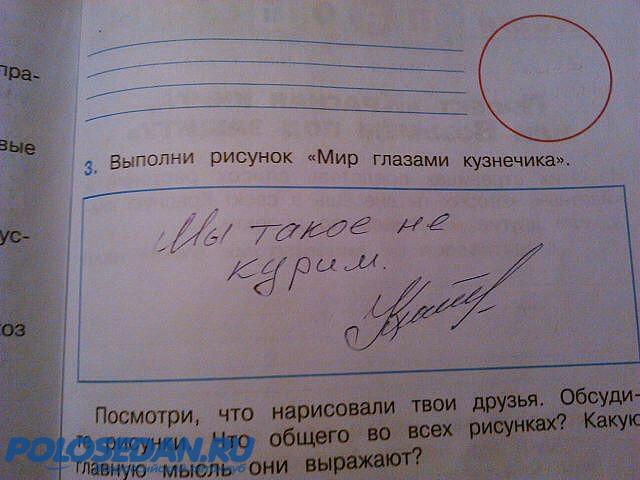 пра-
вые
ус-
оз
3. Выполни рисунок «Мир глазами кузнечика».
Мы такое не
курим.
Посмотри, что нарисовали твои друзья. Обсуди-
те рисунки. Что общего во всех рисунках? Какую
главную мысль они выражают?
POLOSEDAN.RU